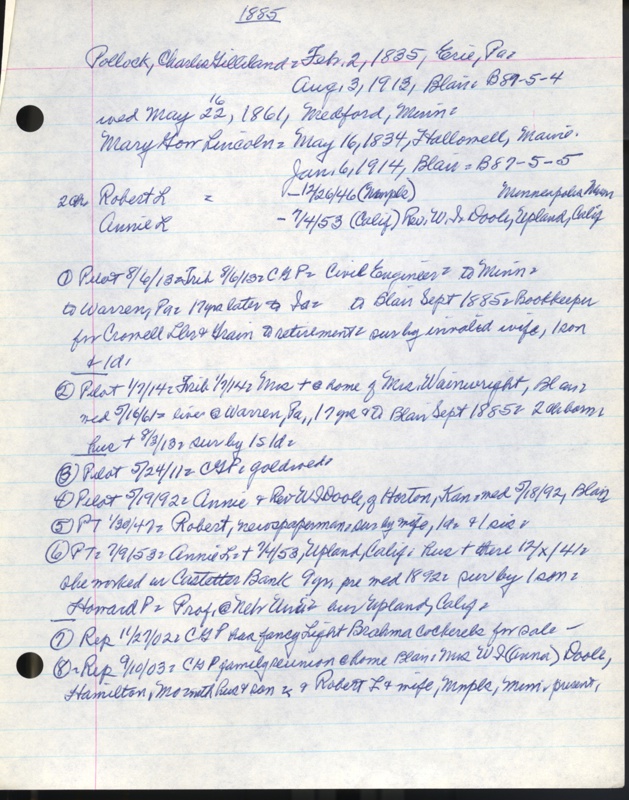 1885
Pollock, Charles Gilliland = Feb. 2, 1835, Erie, Pa =
Aug. 3, 1913, Blair = B87-5-4
16
wed May 22, 1861, Medford, Minn =
Mary Gow Lincoln = May 16, 1834, Hallowell, Maine.
Jan. 6, 1914, Blair = B87-5-5
2ch Robert L = -12/26/46 (Mnpls) Minneapolis Minn
Annie L - 7/4/53 (Calif) Rev. W. I. Doole, Upland, Calif
① Pilot 8/6/13 = Trib 8/6/13 = CGP = Civil Engineer = to Minn =
to Warren, Pa = 17 yrs later to Ia = to Blair Sept 1885 = Bookkeeper
for Crowell Lbr & Grain to retirement = sur by invalid wife, 1 son
& 1 d.
② Pilot 1/7/14 = Trib 1/7/14 = Mrs + @ home of Mrs. Wainwright, Blair =
wed 5/16/61 = lived @ Warren, Pa., 17 yrs & to Blair Sept 1885 = 2 ch born =
hus + 8/3/13 = sur by 1 s 1 d =
③ Pilot 5/24/11 = CGP = gold wed =
④ Pilot 5/19/92 = Annie & Rev W I Doole, of Horton, Kan = wed 5/18/92, Blair
⑤ PT 1/30/47 = Robert, newspaperman = sur by wife, 1 d = & 1 sis =
⑥ PT = 7/9/53 = Annie L = + 7/4/53, Upland, Calif = hus + there 12/x/41 =
she worked in Castetter Bank 9 yrs, pre wed 1892 = sur by 1 son =
Howard P = Prof. @ Nebr Univ = sur Upland, Calif =
⑦ Rep 11/27/02 = CGP has fancy Light Brahma cockerels for sale -
⑧ Rep 9/10/03 = CGP family reunion @ home Blair = Mrs W I (Anna) Doole,
Hamilton, Mo with hus & son & Robert L & wife, Mnpls, Minn. present,